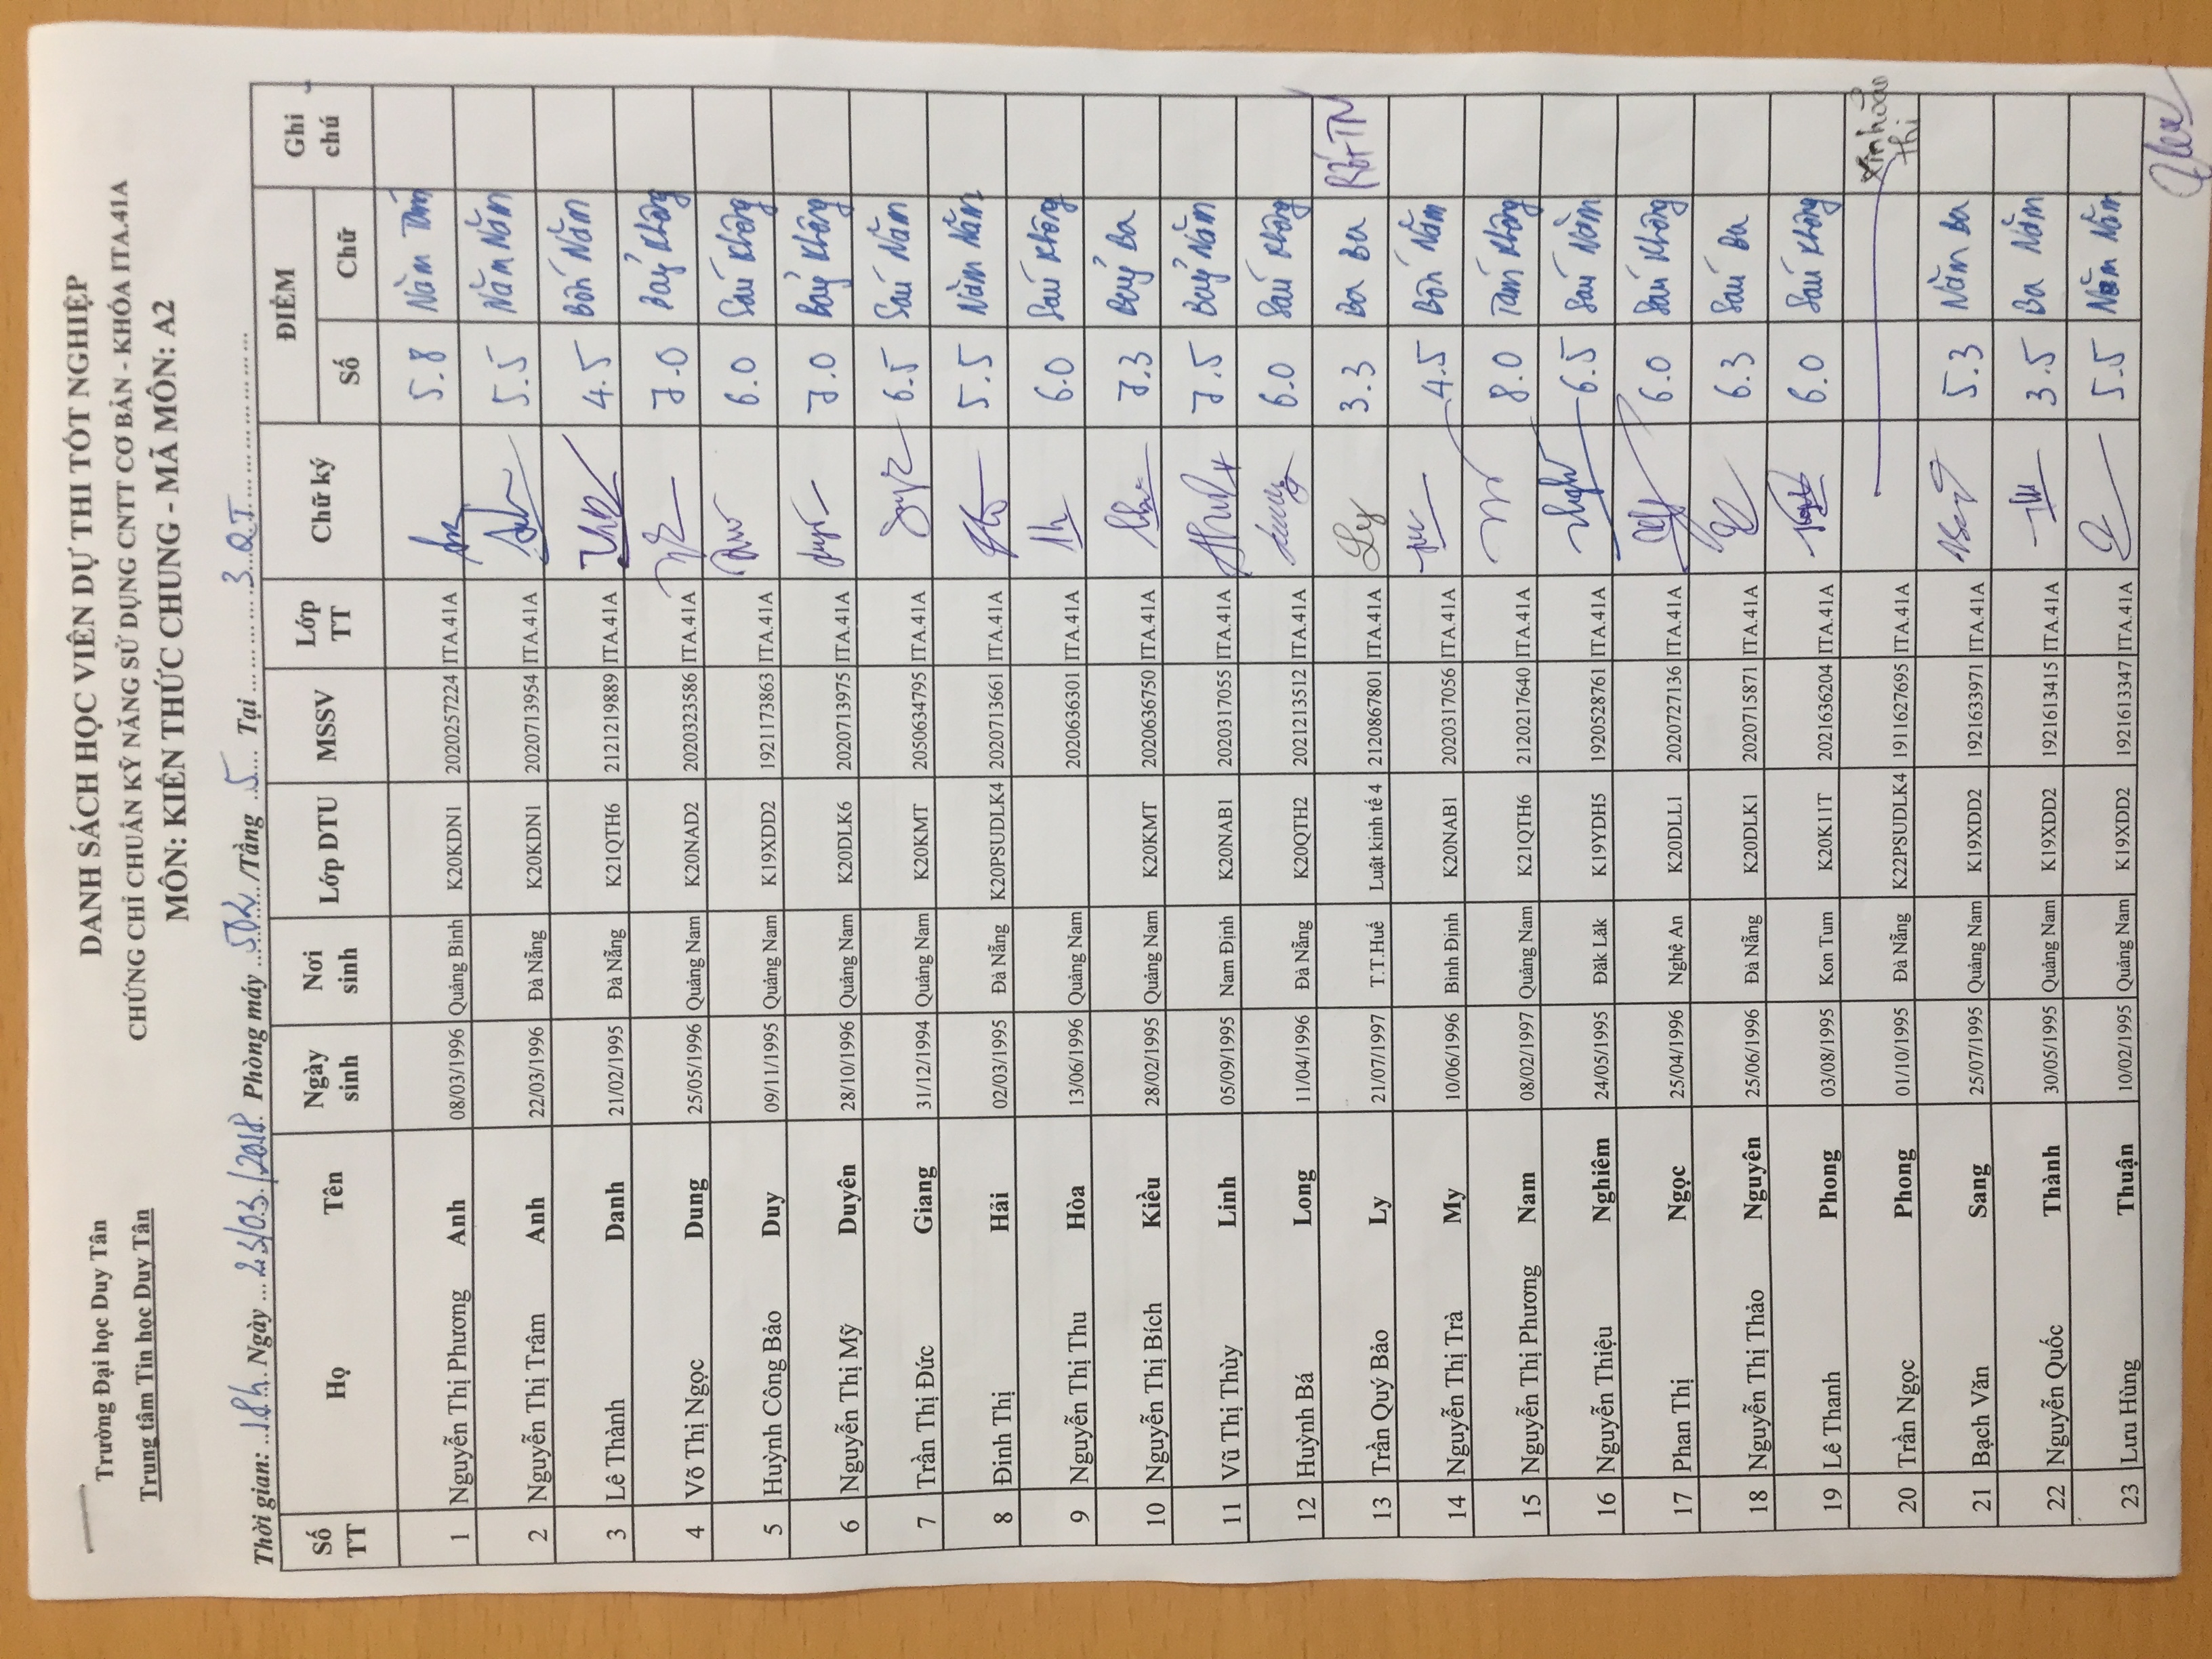 Trường Đại học Duy Tân
Trung tâm Tin học Duy Tân
DANH SÁCH HỌC VIÊN DỰ THI TỐT NGHIỆP
CHỨNG CHỈ CHUẨN KỸ NĂNG SỬ DỤNG CNTT CƠ BẢN - KHÓA ITA.41A
MÔN: KIẾN THỨC CHUNG - MÃ MÔN: A2
Thời gian: 18h Ngày 23/03/2018 Phòng máy 502 /Tầng 5 Tại 3 QT
Số TT Họ Tên Ngày sinh Nơi sinh Lớp DTU MSSV Lớp TT Chữ ký ĐIỂM Số Chữ Ghi chú
1 Nguyễn Thị Phương Anh 08/03/1996 Quảng Bình K20KDN1 2020257224 ITA.41A 5.8 Năm Tám
2 Nguyễn Thị Trâm Anh 22/03/1996 Đà Nẵng K20KDN1 2020713954 ITA.41A 5.5 Năm Năm
3 Lê Thành Danh 21/02/1995 Đà Nẵng K21QTH6 2121219889 ITA.41A 4.5 Bốn Năm
4 Võ Thị Ngọc Dung 25/05/1996 Quảng Nam K20NAD2 2020323586 ITA.41A 7.0 Bảy Không
5 Huỳnh Công Bảo Duy 09/11/1995 Quảng Nam K19XDD2 1921173863 ITA.41A 6.0 Sáu Không
6 Nguyễn Thị Mỹ Duyên 28/10/1996 Quảng Nam K20DLK6 2020713975 ITA.41A 7.0 Bảy Không
7 Trần Thị Đức Giang 31/12/1994 Quảng Nam K20KMT 2050634795 ITA.41A 6.5 Sáu Năm
8 Đinh Thị Hải 02/03/1995 Đà Nẵng K20PSUDLK4 2020713661 ITA.41A 5.5 Năm Năm
9 Nguyễn Thị Thu Hòa 13/06/1996 Quảng Nam 2020636301 ITA.41A 6.0 Sáu Không
10 Nguyễn Thị Bích Kiều 28/02/1995 Quảng Nam K20KMT 2020636750 ITA.41A 7.3 Bảy Ba
11 Vũ Thị Thùy Linh 05/09/1995 Nam Định K20NAB1 2020317055 ITA.41A 7.5 Bảy Năm
12 Huỳnh Bá Long 11/04/1996 Đà Nẵng K20QTH2 2021213512 ITA.41A 6.0 Sáu Không
13 Trần Quý Bảo Ly 21/07/1997 T.T.Huế Luật kinh tế 4 2120867801 ITA.41A Ly 3.3 Ba Ba Rớt TN
14 Nguyễn Thị Trà My 10/06/1996 Bình Định K20NAB1 2020317056 ITA.41A 4.5 Bốn Năm
15 Nguyễn Thị Phương Nam 08/02/1997 Quảng Nam K21QTH6 2120217640 ITA.41A 8.0 Tám Không
16 Nguyễn Thiệu Nghiêm 24/05/1995 Đăk Lăk K19YDH5 1920528761 ITA.41A 6.5 Sáu Năm
17 Phan Thị Ngọc 25/04/1996 Nghệ An K20DLL1 2020727136 ITA.41A 6.0 Sáu Không
18 Nguyễn Thị Thảo Nguyên 25/06/1996 Đà Nẵng K20DLK1 2020715871 ITA.41A 6.3 Sáu Ba
19 Lê Thanh Phong 03/08/1995 Kon Tum K20K11T 2021636204 ITA.41A 6.0 Sáu Không
20 Trần Ngọc Phong 01/10/1995 Đà Nẵng K22PSUDLK4 1911627695 ITA.41A Xin hoãn thi
21 Bạch Văn Sang 25/07/1995 Quảng Nam K19XDD2 1921633971 ITA.41A 5.3 Năm Ba
22 Nguyễn Quốc Thành 30/05/1995 Quảng Nam K19XDD2 1921613415 ITA.41A 3.5 Ba Năm
23 Lưu Hùng Thuận 10/02/1995 Quảng Nam K19XDD2 1921613347 ITA.41A 5.5 Năm Năm